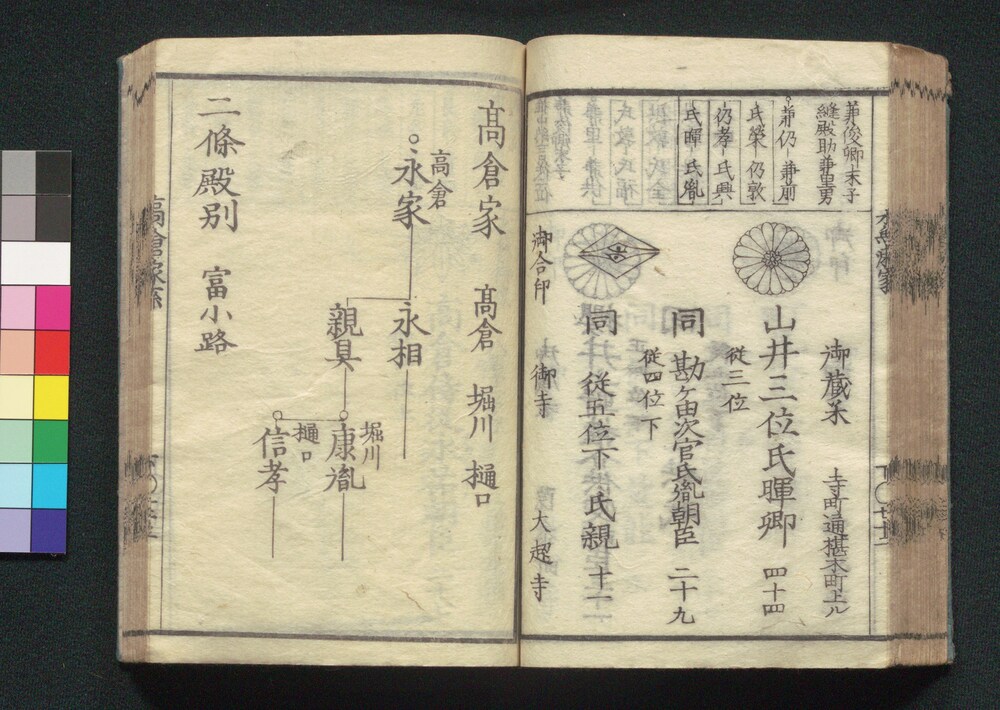 兼俊卿末子
縫殿助兼里男
兼仍-兼前
氏榮-仍敦
仍孝-氏興
氏暉-氏胤
御蔵米 寺町通椹木町上ル
山井三位氏暉卿 四十四
従三位
同 勘ヶ由次官氏胤朝臣 二十九
従四位下
同 従五位下氏親 十一
御合印 御寺 大超寺
髙倉家 髙倉 堀川 樋口
高倉
永家
永相
親具
堀川
康胤
樋口
信孝
二條殿別 富小路